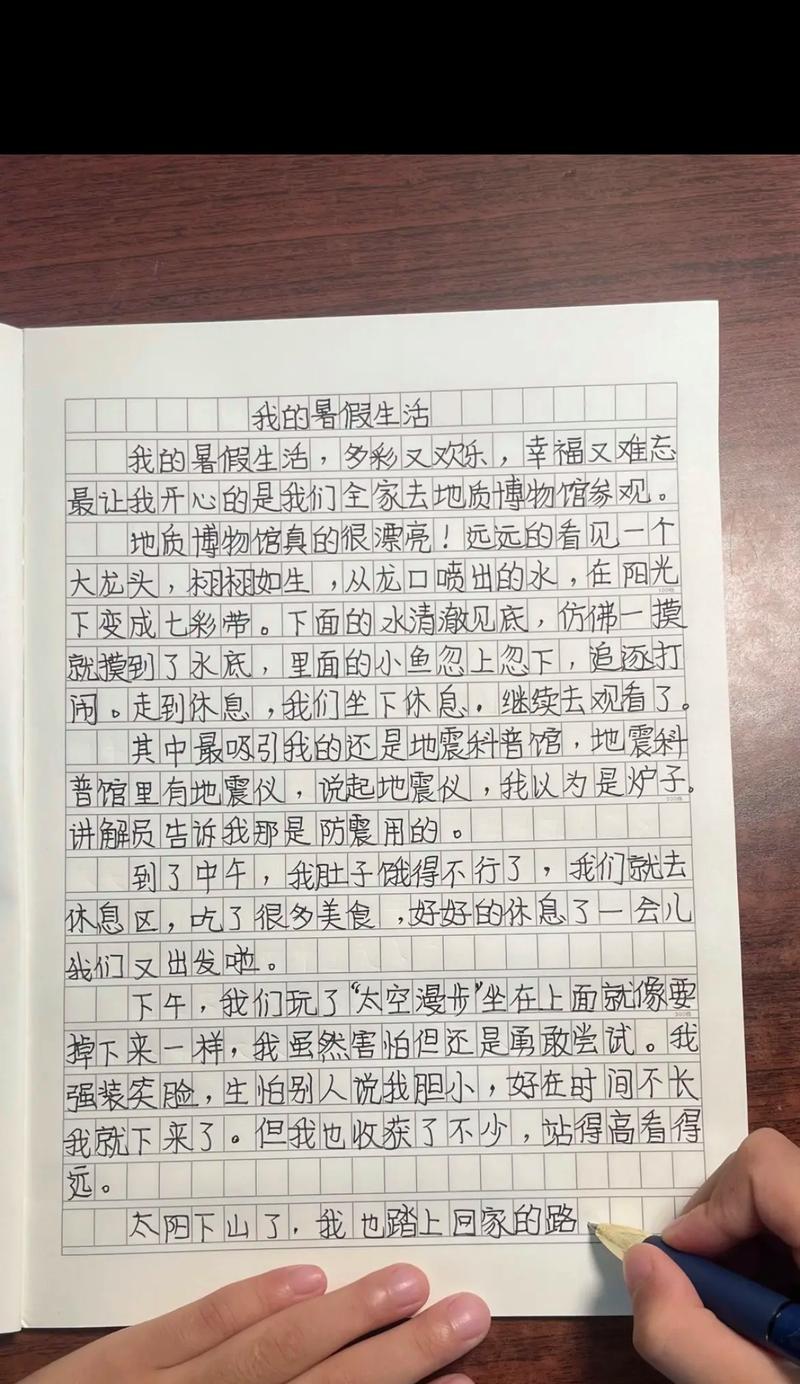 我的暑假生活
我的暑假生活，多彩又欢乐，幸福又难忘
最让我开心的是我们全家去地质博物馆参观。
地质博物馆真的很漂亮！远远的看见一个
大龙头，栩栩如生，从龙口喷出的水，在阳光
下变成七彩带。下面的水清澈见底，仿佛一摸
就摸到了水底，里面的小鱼忽上忽下，追逐打
闹。走到休息，我们坐下休息。继续去观看了。
其中最吸引我的还是地震科普馆，地震科
普馆里有地震仪，说起地震仪，我以为是炉子。
讲解员告诉我那是防震用的。
到了中午，我肚子饿得不行了，我们就去
休息区，吃了很多美食，好好的休息了一会儿
我们又出发啦。
下午，我们玩了“太空漫步”坐在上面就像要
掉下来一样，我虽然害怕但还是勇敢尝试。我
强装笑脸，生怕别人说我胆小，好在时间不长
我就下来了。但我也收获了不少，站得高看得
远。
太阳下山了，我也踏上回家的路